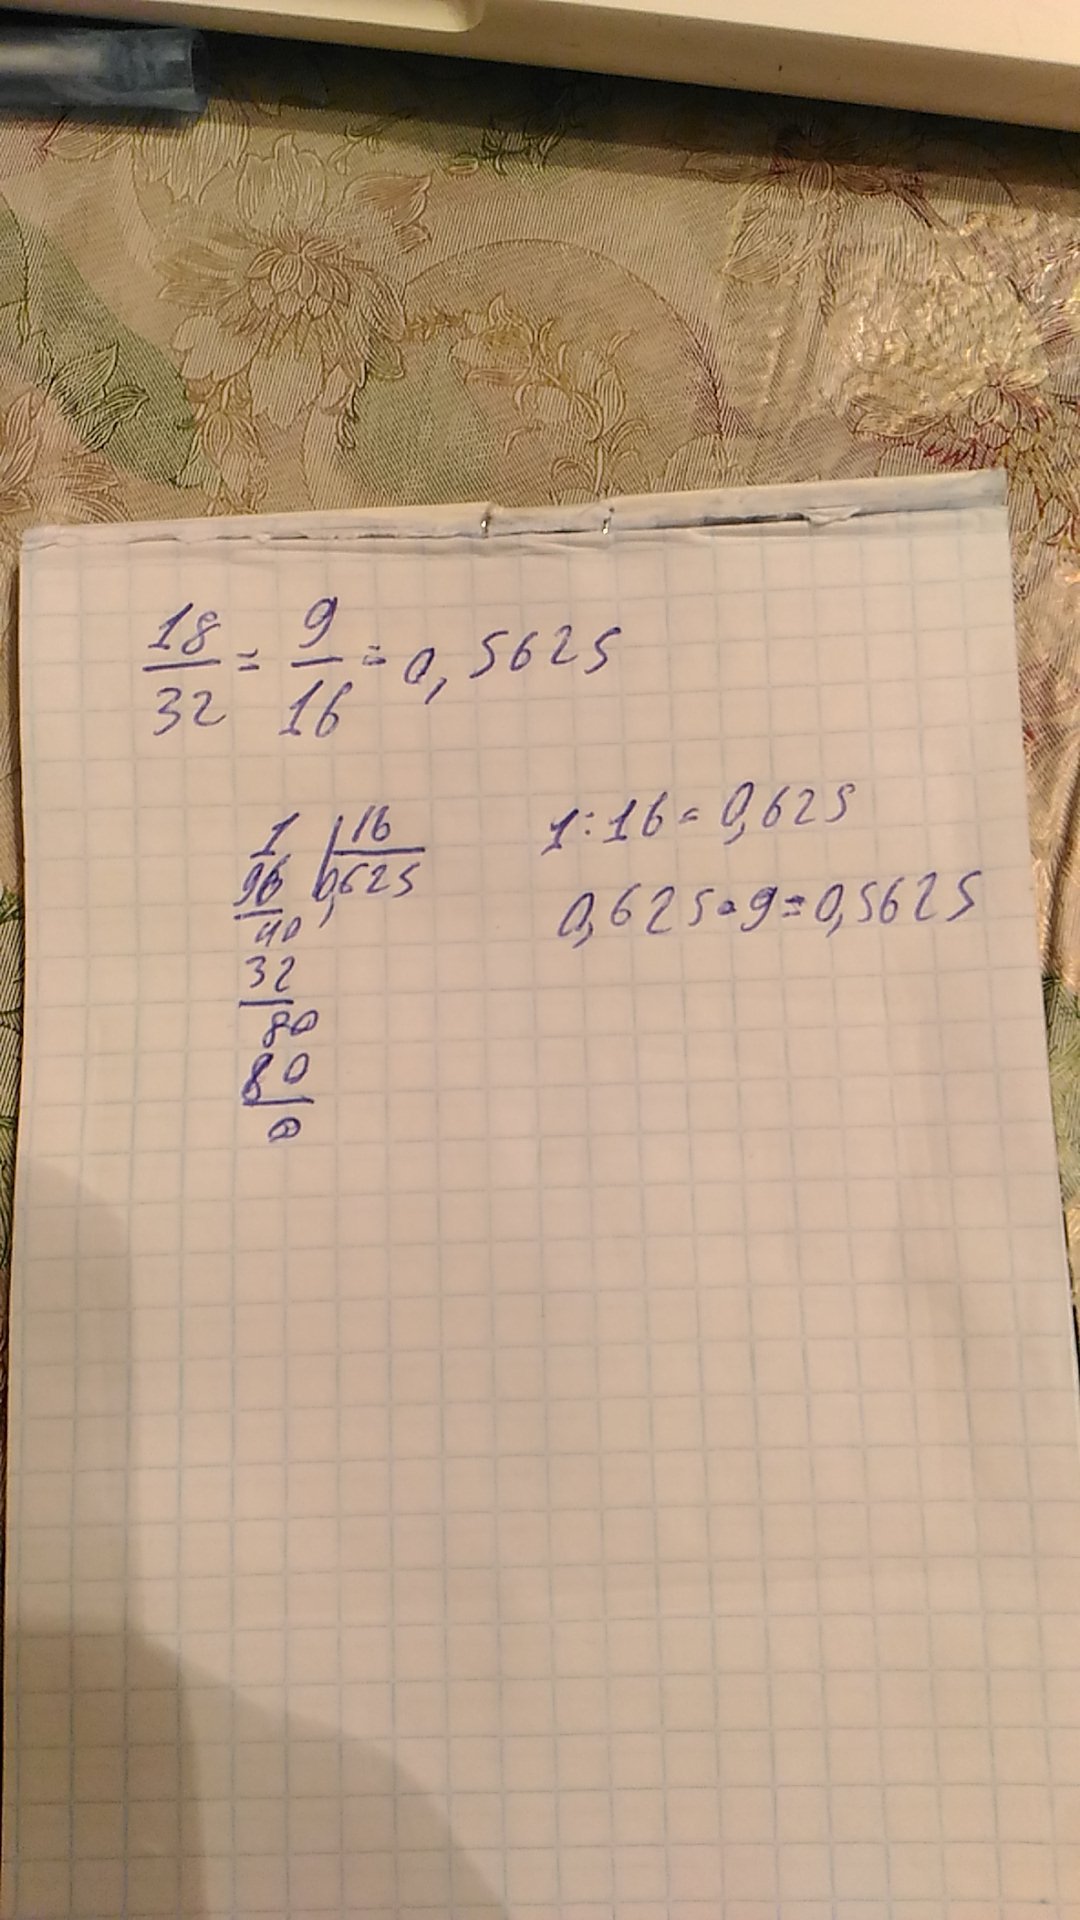 18/32 = 9/16 = 0,5625
1 | 16
96 | 0,625
40
32
80
80
0
1:16 = 0,625
0,625 · 9 = 0,5625